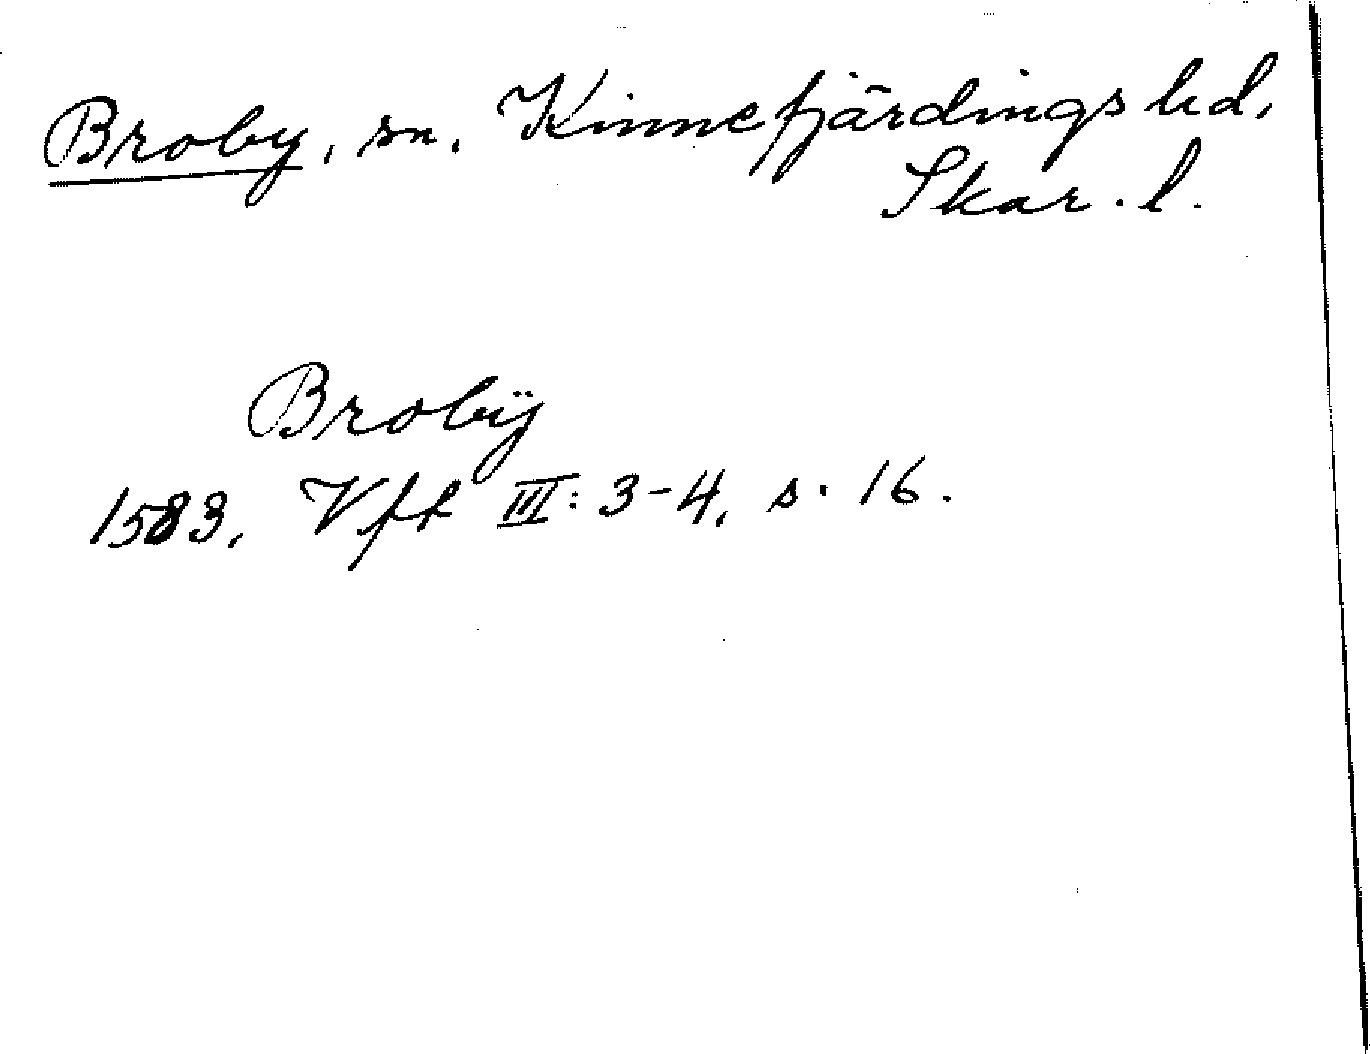 Broby, sn. Kinnefjärdings hd,
Skar. l.
Brobÿ
1583, Vft III: 3-4, s. 16.